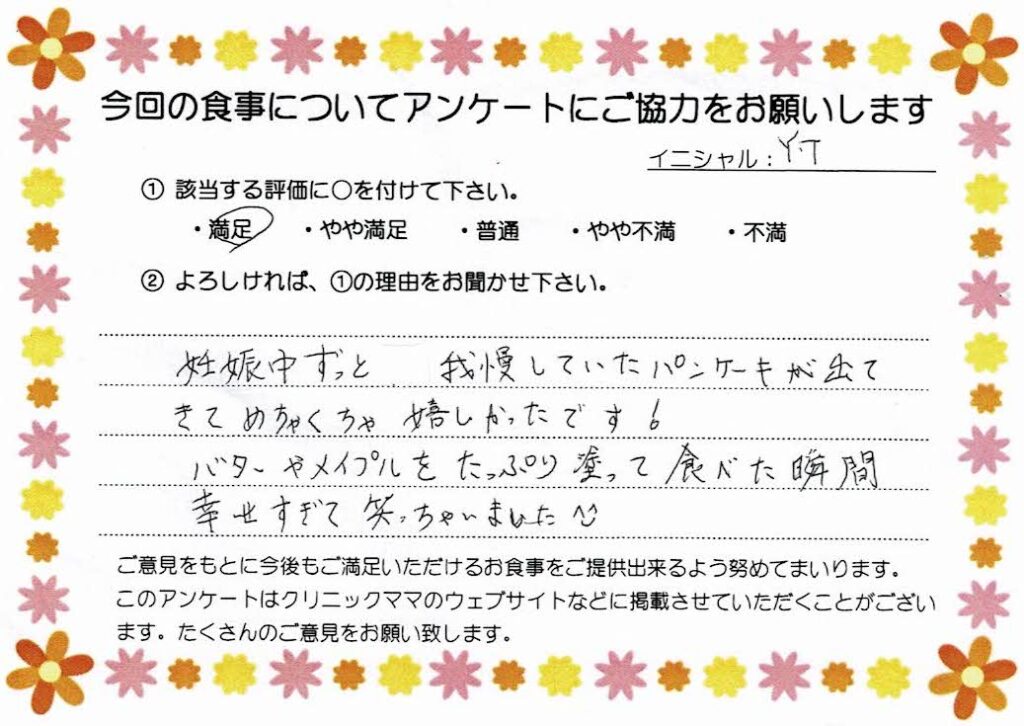 今回の食事についてアンケートにご協力をお願いします
イニシャル：Y.T
① 該当する評価に○を付けて下さい。
・満足 ・やや満足 ・普通 ・やや不満 ・不満
② よろしければ、①の理由をお聞かせ下さい。
妊娠中ずっと 我慢していたパンケーキが出て
きてめちゃくちゃ嬉しかったです!
バターやメイプルをたっぷり塗って食べた瞬間
幸せすぎて笑っちゃいました
ご意見をもとに今後もご満足いただけるお食事をご提供出来るよう努めてまいります。
このアンケートはクリニックママのウェブサイトなどに掲載させていただくことがござい
ます。たくさんのご意見をお願い致します。